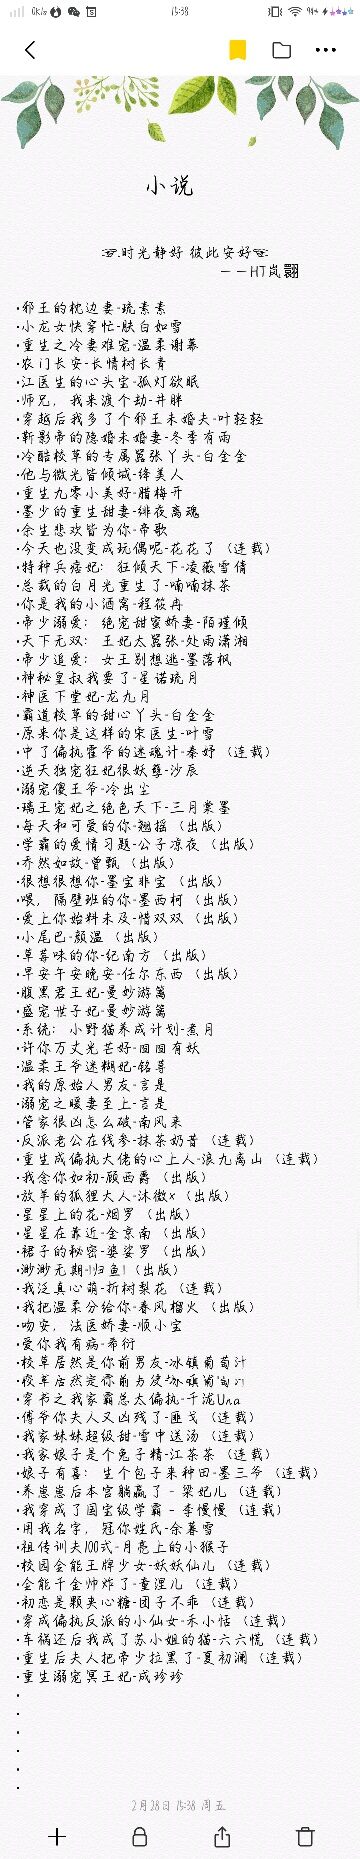 15:38
小说
☞.时光静好 彼此安好☜
——HT岚翾
·邪王的枕边妻-琉素素
·小龙女快穿忙-肤白如雪
·重生之冷妻难宠-温柔谢幕
·农门长安-长情树长青
·江医生的心头宝-孤灯欲眠
·师兄，我来渡个劫-井胖
·穿越后我多了个邪王未婚夫-叶轻轻
·靳影帝的隐婚未婚妻-冬季有雨
·冷酷校草的专属嚣张丫头-白金金
·他与微光皆倾城-绛美人
·重生九零小美好-腊梅开
·墨少的重生甜妻-绯夜离魂
·余生悲欢皆为你-帝歌
·今天也没变成玩偶呢-花花了（连载）
·特种兵痞妃：狂倾天下-凌薇雪倩
·总裁的白月光重生了-喃喃抹茶
·你是我的小酒窝-程筱冉
·帝少溺爱：绝宠甜蜜娇妻-陌瑾倾
·天下无双：王妃太嚣张-处雨潇湘
·帝少追爱：女王别想逃-墨落枫
·神秘皇叔我要了-星诺琉月
·神医下堂妃-龙九月
·霸道校草的甜心丫头-白金金
·原来你是这样的宋医生-叶雪
·中了偏执霍爷的迷魂计-秦妤（连载）
·逆天独宠狂妃很妖孽-沙辰
·溺宠傻王爷-冷出尘
·瑞王宠妃之绝色天下-三月棠墨
·每天和可爱的你-翘摇（出版）
·学霸的爱情习题-公子凉夜（出版）
·乔然如故-曾甄（出版）
·很想很想你-墨宝非宝（出版）
·喂，隔壁班的你-墨西柯（出版）
·爱上你始料未及-惜双双（出版）
·小尾巴-颜温（出版）
·草莓味的你-纪南方（出版）
·早安午安晚安-任尔东西（出版）
·腹黑君王妃-曼妙游篱
·盛宠世子妃-曼妙游篱
·系统：小野猫养成计划-煮月
·许你万丈光芒好-囧囧有妖
·温柔王爷迷糊妃-铭荨
·我的原始人男友-言是
·溺宠之暖妻至上-言是
·管家很凶怎么破-南风来
·反派老公在线参-抹茶奶昔（连载）
·重生成偏执大佬的心上人-浪九离山（连载）
·我念你如初-顾西爵（出版）
·放羊的狐狸大人-沐微x（出版）
·星星上的花-烟罗（出版）
·星星在靠近-金京南（出版）
·裙子的秘密-婆娑罗（出版）
·渺渺无期-|归鱼|（出版）
·我泛真心萌-折树梨花（连载）
·我把温柔分给你-春风榴火（出版）
·吻安，法医娇妻-顺小宝
·爱你我有病-希衍
·校草居然是你前男友-冰镇葡萄汁
·校草居然是你前男友-冰镇葡萄汁
·穿书之我家霸总太偏执-千泷Una
·傅爷你夫人又凶残了-匪戈（连载）
·我家妹妹超级甜-雪中送汤（连载）
·我家娘子是个兔子精-江茶茶（连载）
·娘子有喜：生个包子来种田-墨三爷（连载）
·养崽崽后本宫躺赢了-梁妃儿（连载）
·我穿成了国宝级学霸-李慢慢（连载）
·用我名字，冠你姓氏-余暮雪
·祖传训夫100式-月亮上的小猴子
·校园全能王牌少女-妖妖仙儿（连载）
·全能千金帅炸了-童涅儿（连载）
·初恋是颗夹心糖-团子不乖（连载）
·穿成偏执反派的小仙女-禾小恬（连载）
·车祸还后我成了苏小姐的猫-六六慌（连载）
·重生后夫人把帝少拉黑了-夏初澜（连载）
·重生溺宠冥王妃-成珍珍
·
·
·
·
·
·
2月28日 15:38 周五